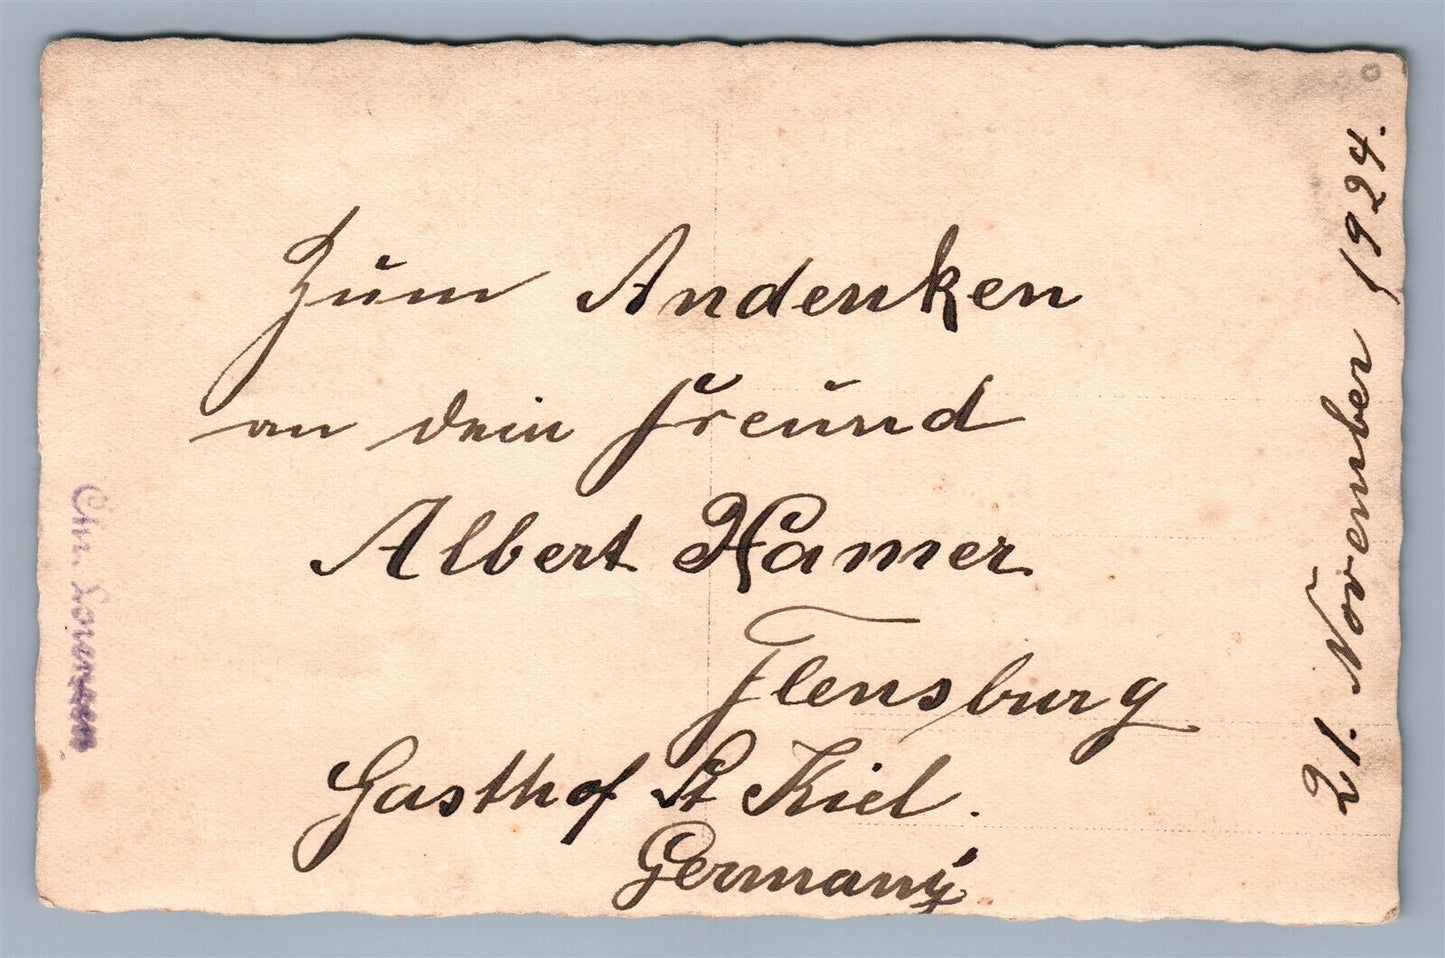 Zum Andenken
an dein Freund
Albert Hamer
Flensburg
Gasthof St Kiel.
Germany
21. November 1924.
Chr. Lorenzen